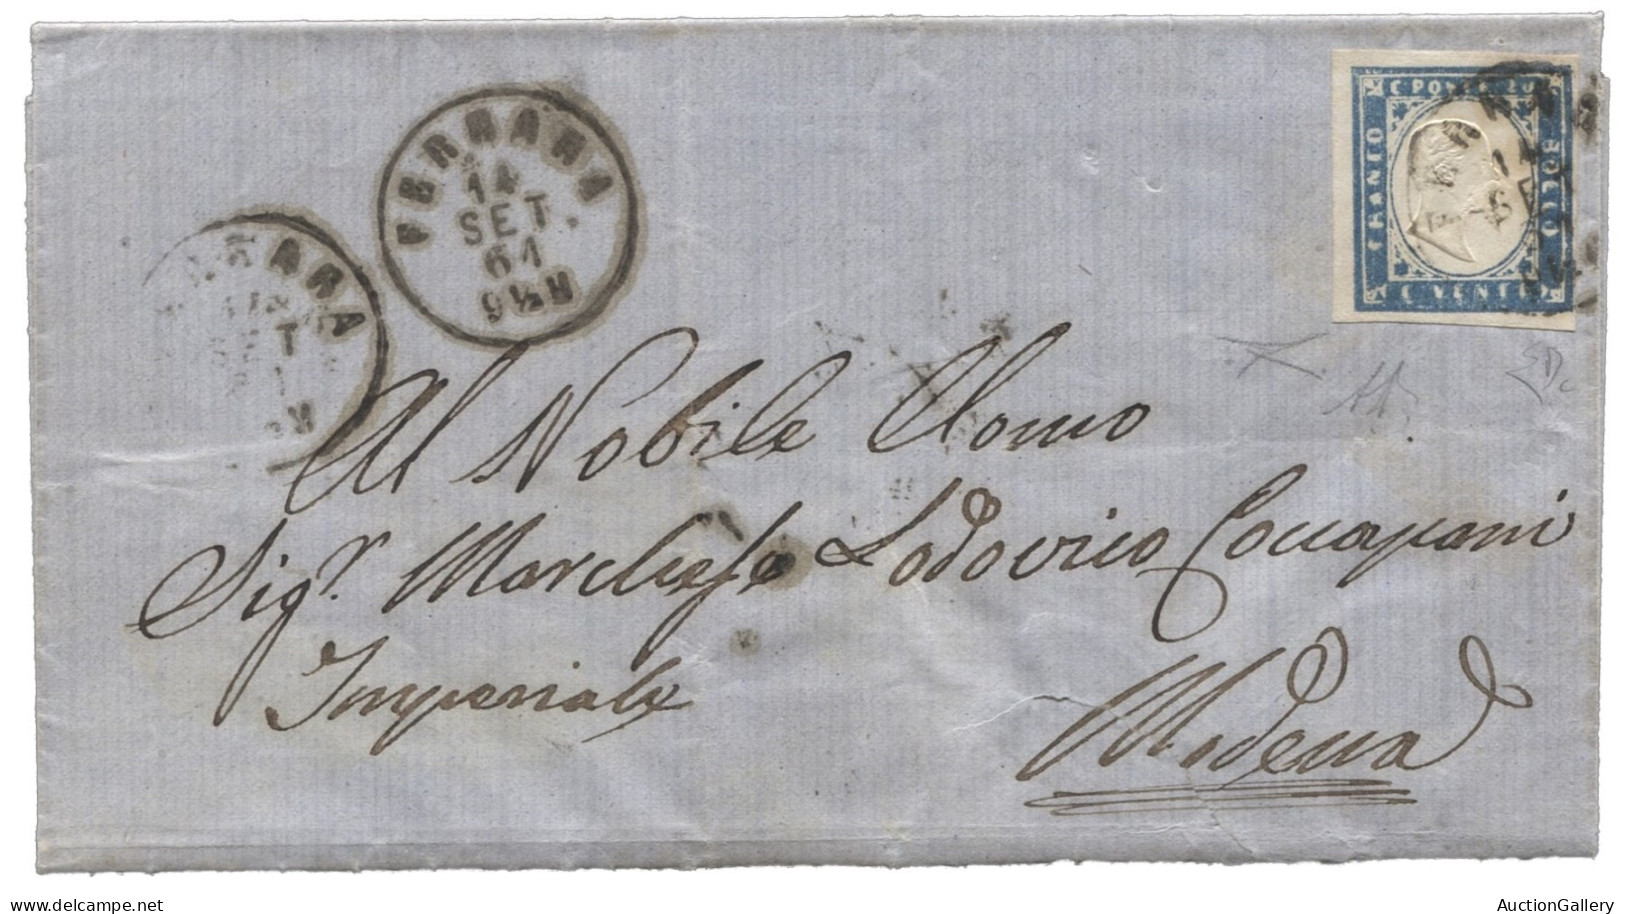 FERRARA
14
SET
61
9½H
C POSTE 20
FRANCO
BOLLO
C VENTI
Al Nobile Uomo
Sigr. Marchese Lodovico Coccapani
Imperiale
Modena
AuctionGallery